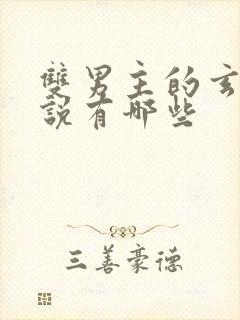 雙男主的玄
說有哪些
三善豪德